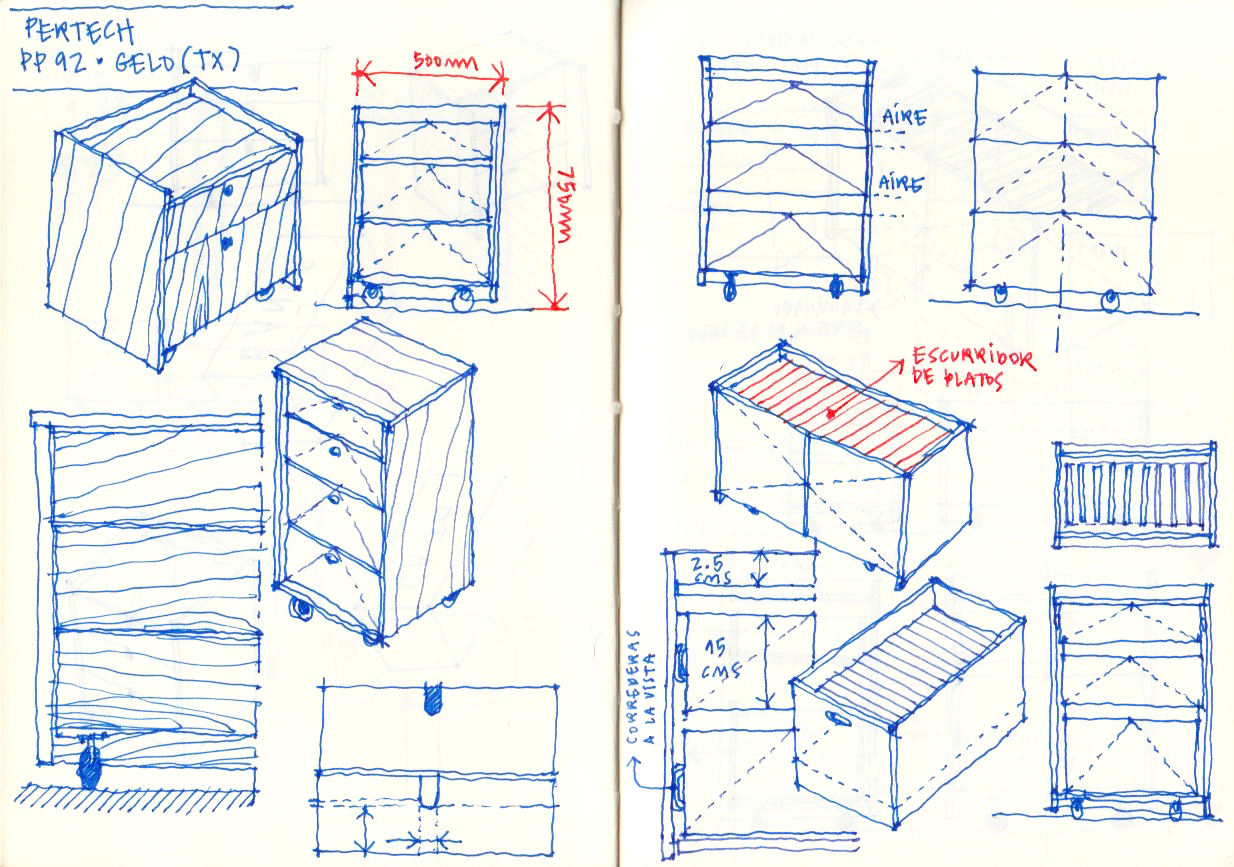 PERTECH
PP92 • GELO (TX)
500mm
750mm
AIRE
AIRE
ESCURRIDOR
DE PLATOS
2.5
CMS
15
CMS
CORREDERAS
A LA VISTA